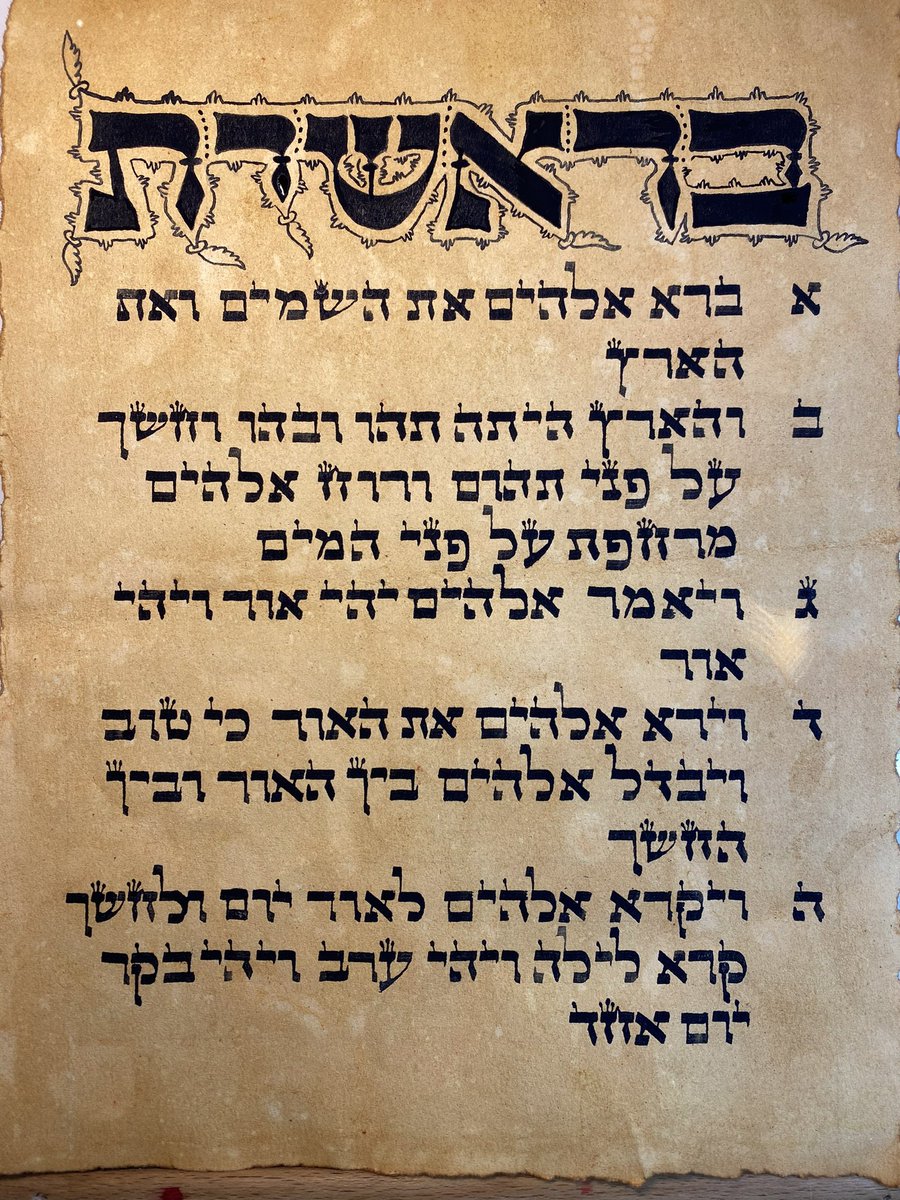 בראשית
א ברא אלהים את השמים ואת
הארץ
ב והארץ היתה תהו ובהו וחשך
על פני תהום ורוח אלהים
מרחפת על פני המים
ג ויאמר אלהים יהי אור ויהי
אור
ד וירא אלהים את האור כי טוב
ויבדל אלהים בין האור ובין
החשך
ה ויקרא אלהים לאור יום ולחשך
קרא לילה ויהי ערב ויהי בקר
יום אחד